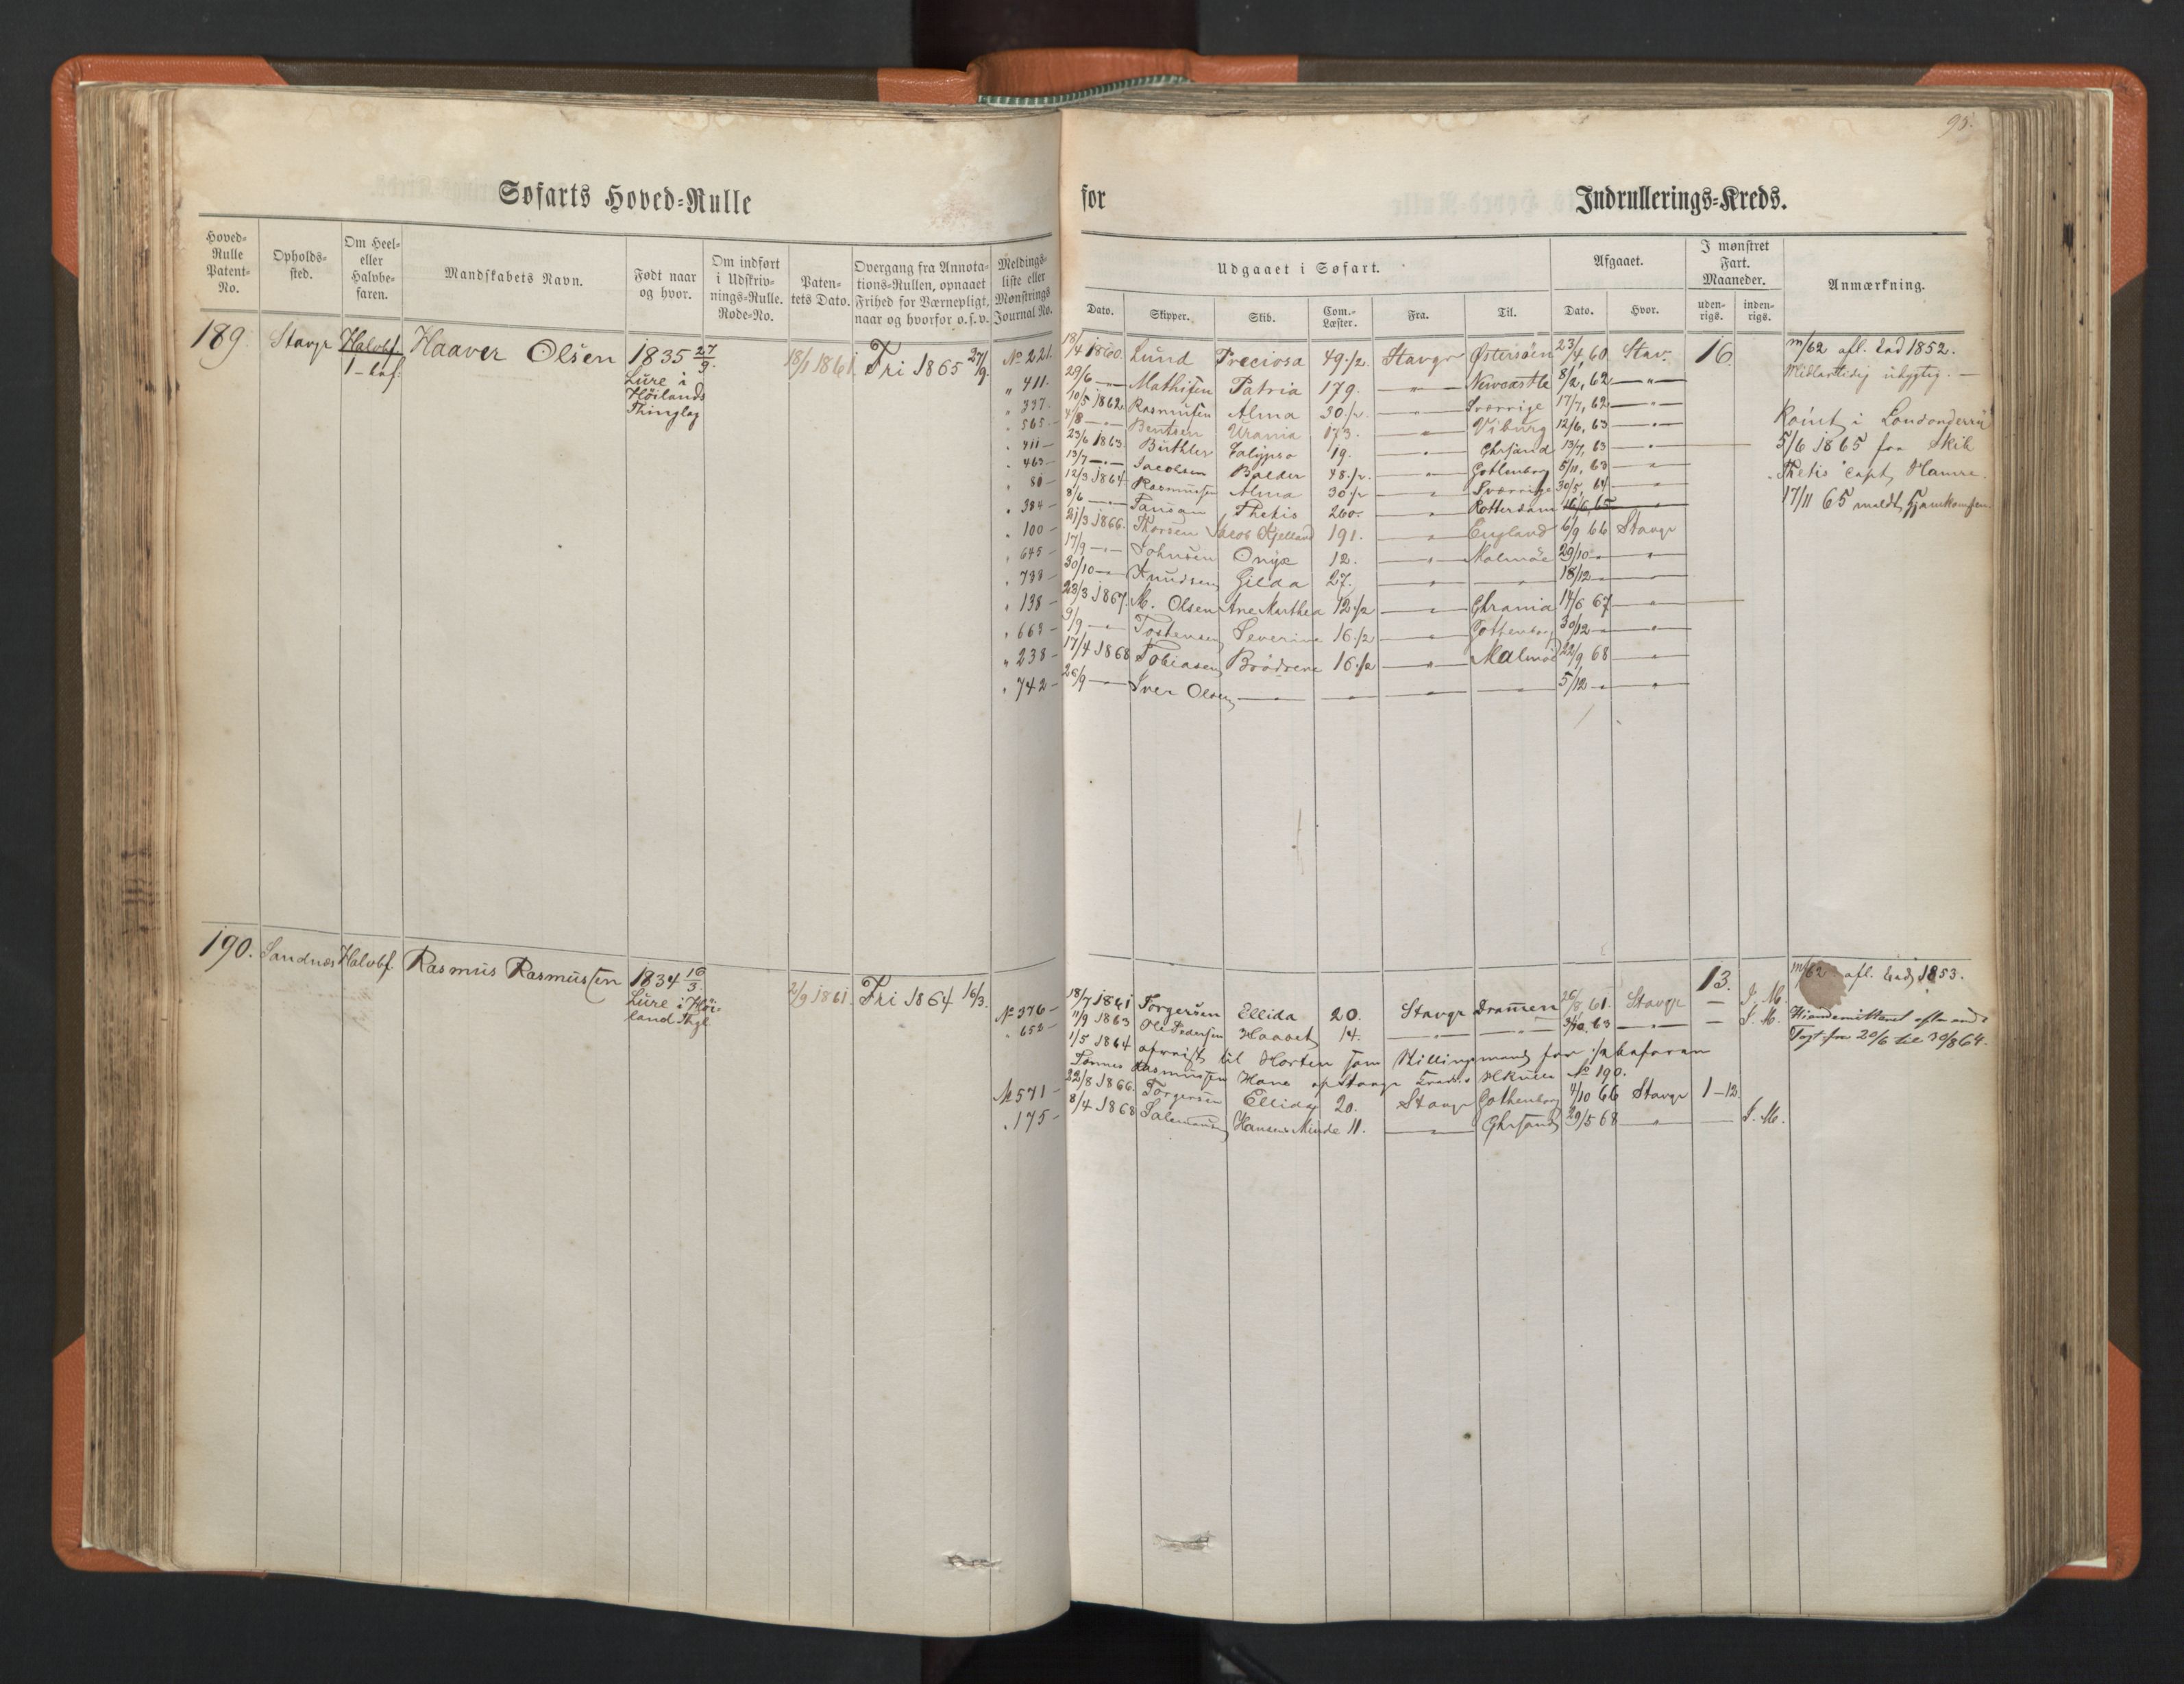 95.
Søfarts Hoved-Rulle for Indrullerings-Kreds.
Hoved-Rulle Patent-No. Opholds-sted. Om Heel- eller Halvbe-faren. Mandskabets Navn. Født naar og hvor. Om indført i Udskriv-nings-Rulle. Rode-No. Paten-tets Dato. Overgang fra Annota-tions-Rullen, opnaaet Frihed for Værnepligt, naar og hvorfor o.s.v. Meldings-liste eller Mønstrings Journal No.
Udgaaet i Søfart. Afgaaet. I mønstret Fart. Maaneder. Anmærkning.
Dato. Skipper. Skib. Com.-Læster. Fra. Til. Dato. Hvor. uden-rigs. inden-rigs.
189. Stavgr Halvbf. Haaver Olsen 1835 27/9. 18/1 1861. Fri 1865 27/9.
1-bef.
Lure i
Höilands
Thinglag
No 221. 18/4 1860. Lund Preciosa 49 1/2 Stavgr Østersøen 23/4, 60 Stav. 16.
" 411. 29/6 — Mathisen Patria 179. — " — Newcastle 8/2, 62 — " —
" 337. 10/5 1862. Rasmussen Alma 30 1/2 — " — Sverrige 17/7, 62 — " —
" 565 — 4/8 — Bentsen Urania 173. — " — Viburg 12/6, 63 — " —
" 411 — 23/6 1863. Büthler Calypso 19. — " — Chrsand 13/7, 63 — " —
" 463 — 13/7 — Jacobsen Balder 48 1/2 — " — Gothenborg 5/11, 63 — " —
" 80 — 12/3 1864 Rasmussen Alma 30 1/2 — " — Sverrige 30/5, 64 — " —
" 384 — 8/6 — Thetis 260. — " — Rotterdam 16/6, 65 — " —
" 100 — 21/3 1866. Thorsen Jacob Kjelland 191. — " — England 6/9 66 Stavgr
" 645 — 17/9 — Johnsen Onyx 12. — " — Malmöe 29/10 — " —
" 738 — 30/10 — Knudsen Gilda 27. — " — 18/12 — " —
" 138 — 23/3 1867. M. Olsen Ane Marthea 12 1/2 — " — Chrania 14/6 67 — " —
" 663 — 9/9 — Tostensen Severine 16 1/2 — " — Gothenborg 30/12 — " —
" 238 — 17/4 1868 Tobiasen Brödrene 16 1/2 — " — Malmöe 22/9 68 — " —
" 742 — 26/9 — Iver Olsen — — — — 5/12 — " —
m/62 afl. Ead 1852.
Midlertidig udygtig. —
Römt i Londonderry
5/6 1865 fra Skib
Thetis Capt. Hamre.
17/11 65 meldt Hjemkomsen.
190. Sandnæs Halvbf. Rasmus Rasmussen 1834 16/3. 2/9 1861. Fri 1864 16/3.
Lure i Höi-
land Thgl
No 376 — 18/7 1861 Torgersen Ellida 20. Stavgr Drammen 26/8 61. Stavgr 13. — I. M.
" 652 — 11/9 1863 Ole Pedersen Haabet 14. — " — 3/10. 63 — " — — I. M.
1/5 1864 afreist til Horten som Stillingsmand for 1/2 befaren
Tönnes Rasmussen Hane af Stavgr HRulle No 190.
No 571 — 22/8 1866. Torgersen Ellida 20. Stavgr Gothenborg 4/10 66 Stavgr 1-12
" 175 — 8/4 1868 Salomonsen Hansens Minde 11. — " — Chrsand 29/5 68 — " — — I. M.
m/62 afl. Ead 1853.
Togt fra 20/6 til 30/8 64.